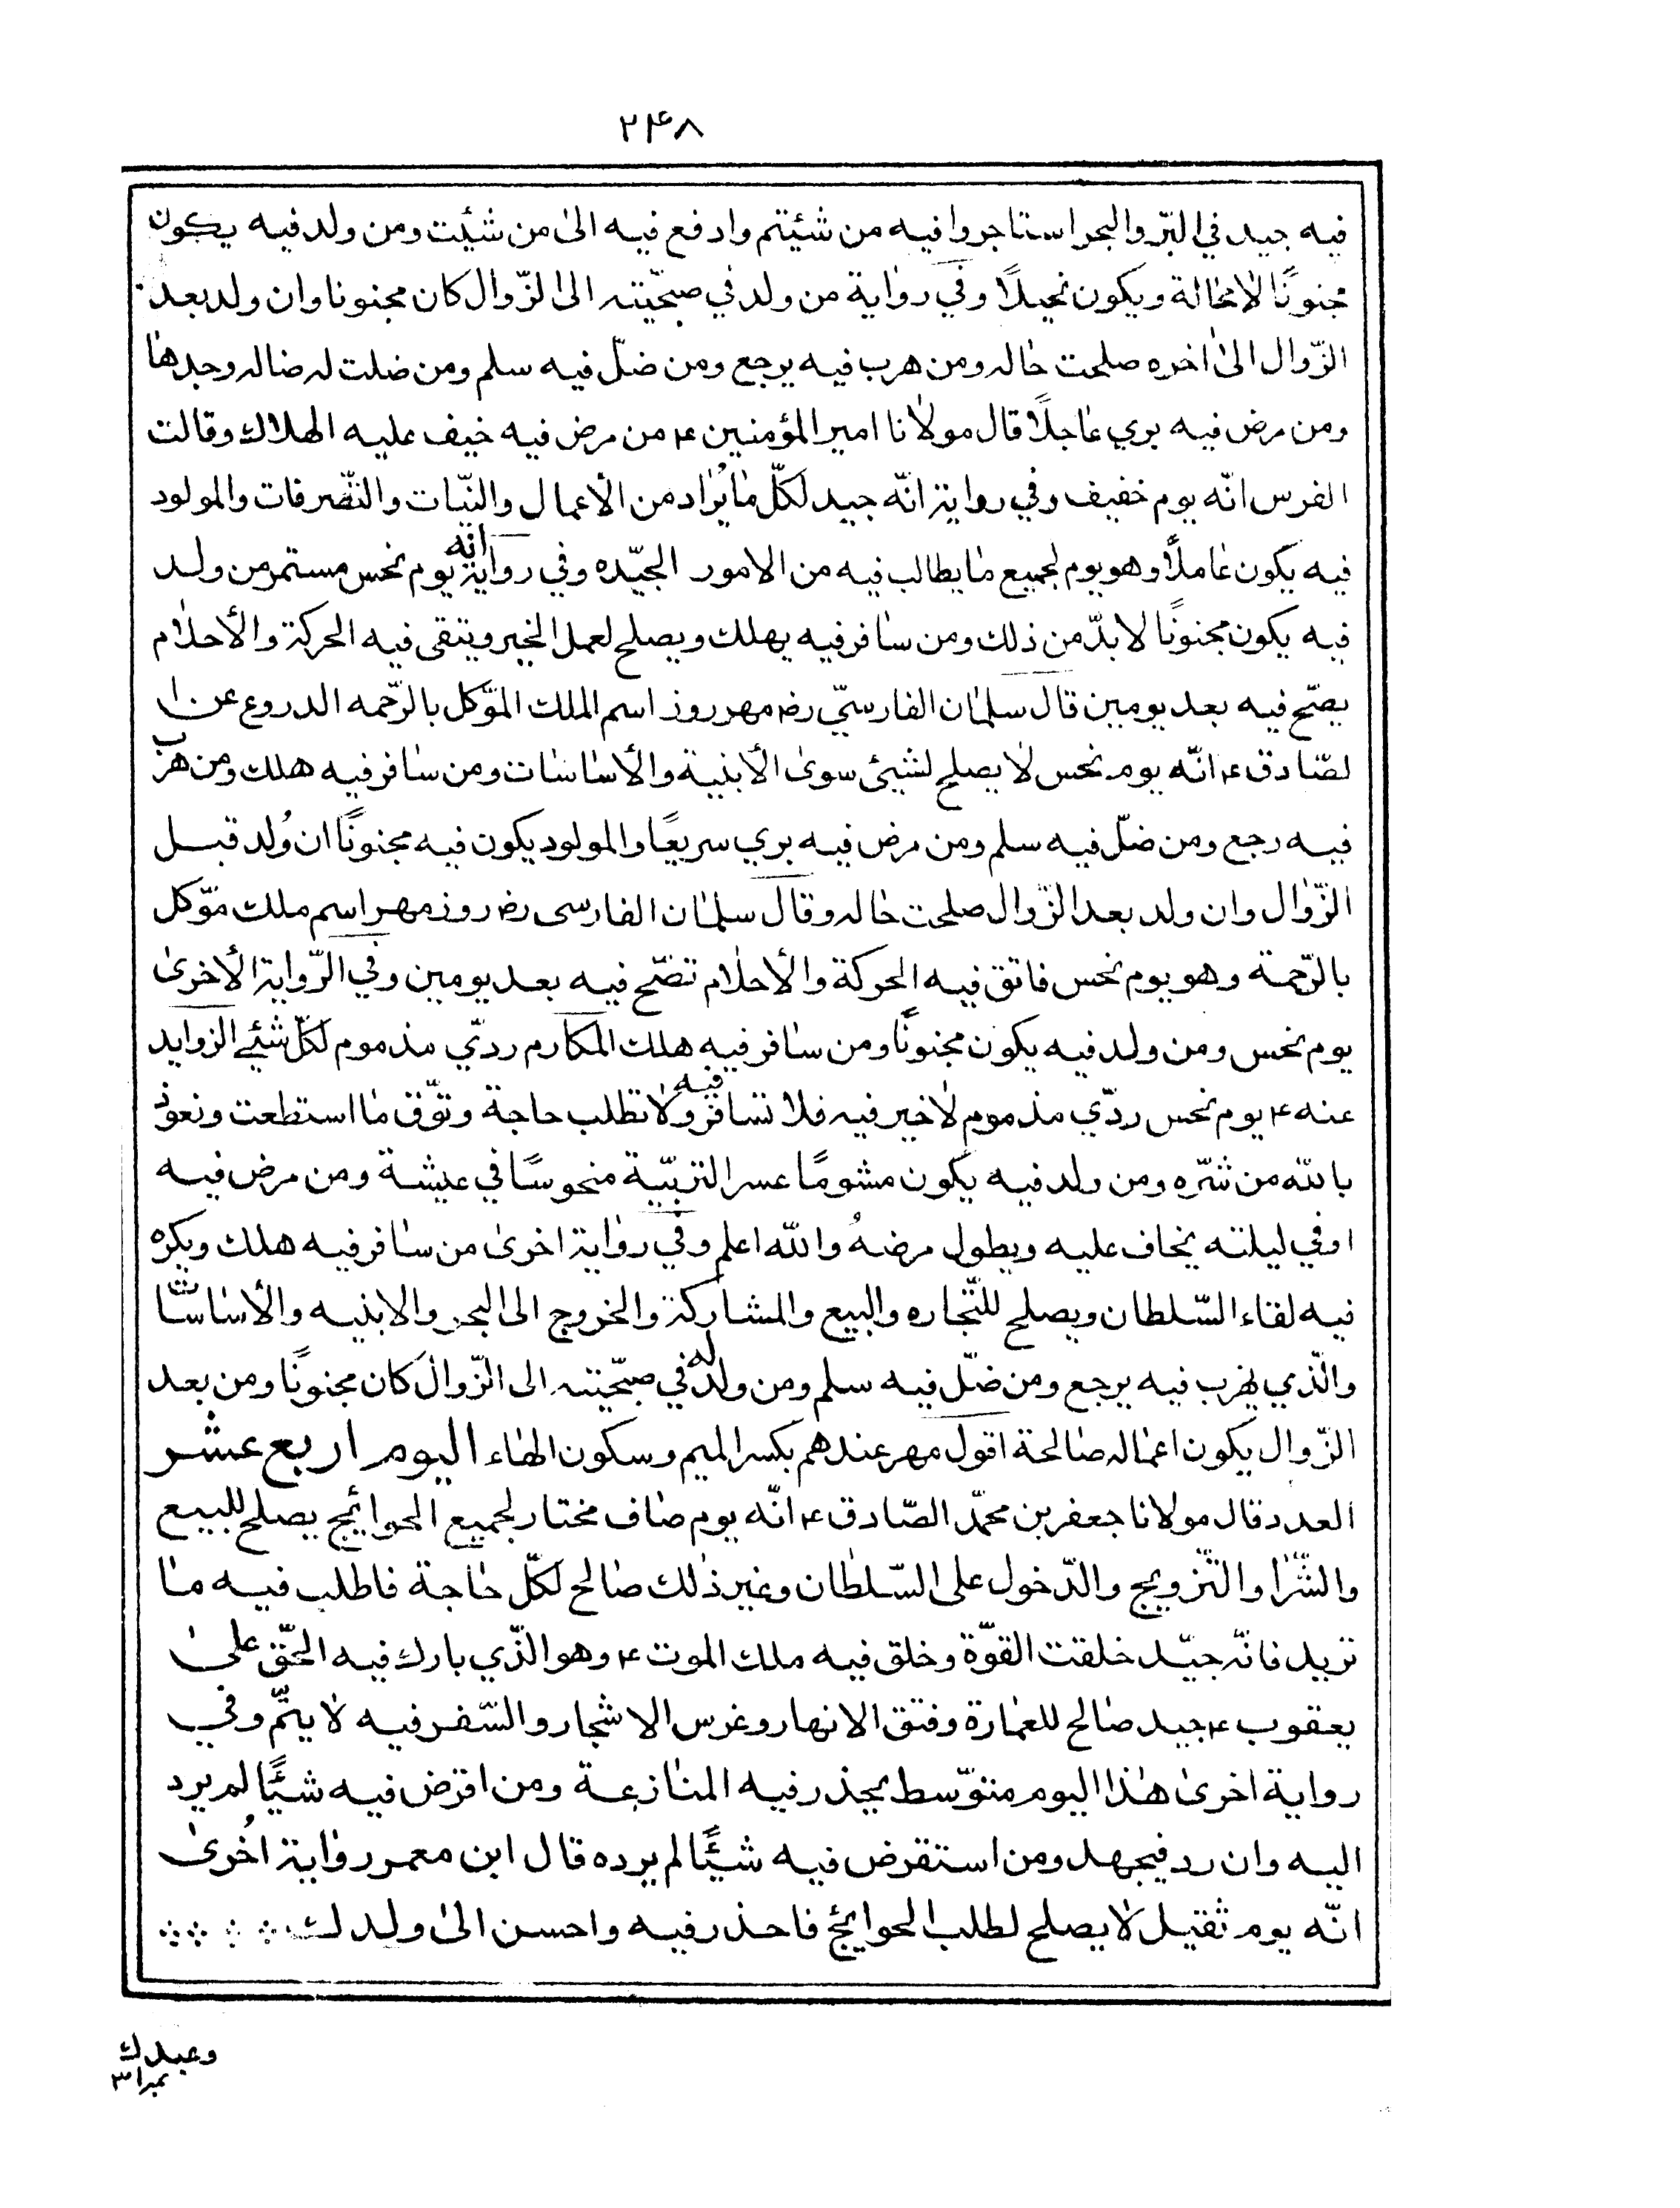 ۲۴۸
فيه جيد في البّر والبحر استاجروا فيه من شئيتم وادفع فيه الىٰ من شئيت ومن ولد فيه يكون
مجنونًا لامحالة ويكون نحيلاً وفي رواية من ولد في صبحّيته الىٰ الزّوال كان مجنونا وان ولد بعد
الزّوال الىٰ اخره صلحت حاله ومن هرب فيه يرجع ومن ضلّ فيه سلم ومن ضلت له ضاله وجدها
ومن مرض فيه بري عاجلاً قال مولانا امير المؤمنين ۴ من مرض فيه خيف عليه الهلاك وقالت
الفرس انّه يوم خفيف وفي رواية انّه جيد لكلّ ما يُراد من الأعمال والنيّات والتّصرفات والمولود
فيه يكون عاملاً وهو يوم لجميع ما يطالب فيه من الامور الجيّده وفي رواية انه يوم نحس مستمر من ولد
فيه يكون مجنونًا لا بدّ من ذلك ومن سافر فيه يهلك ويصلح لعمل الخير ويتقى فيه الحركة والأحلام
يصّح فيه بعد يومين قال سلمان الفارسيّ رض مهر روز اسم الملك المؤكل بالرّحمه الدروع عن ا
لصّادق ۴ انّه يوم نحس لا يصلح لشيئ سوى الأبنية والأساسات ومن سافر فيه هلك ومن هرب
فيه رجع ومن ضلّ فيه سلم ومن مرض فيه بري سريعًا والمولود يكون فيه مجنونًا ان وُلد قبل
الزّوال وان ولد بعد الزّوال صلحت حاله وقال سلمان الفارسى رض روز مهر اسم ملك مؤكل
بالرّحمة وهو يوم نحس فاتق فيه الحركة والأحلام تصّح فيه بعد يومين وفي الرّواية الأخرىٰ
يوم نحس ومن ولد فيه يكون مجنونًا ومن سافر فيه هلك المكارم ردّي مذموم لكلّ شئيے الزوايد
عنه ۴ يوم نحس ردّي مذموم لاخير فيه فلا تسافر فيه ولا تطلب حاجة وتوّق ما استطعت ونعوذ
بالله من شرّه ومن ولد فيه يكون مشومًا عسر التربيّة منحوسًا في عيشة ومن مرض فيه
اوفي ليلته يخاف عليه ويطول مرضهُ والله اعلم وفي رواية اخرىٰ من سافر فيه هلك ويكره
فيه لقاء السّلطان ويصلح للتّجاره والبيع والمشاركة والخروج الى البحر والابنيه والأساسات
والّذي يهرب فيه يرجع ومن ضلّ فيه سلم ومن ولد له في صبحّيته الى الزّوال كان مجنونًا ومن بعد
الزّوال يكون اعماله صالحة اقول مهر عندهم بكسر الميم وسكون الهاء اليوم اربع عشر
العدد قال مولانا جعفر بن محمّد الصّادق ۴ انّه يوم صاف مختار لجميع الحوائج يصلح للبيع
والشّرا والتّزويج والدّخول على السّلطان وغير ذلك صالح لكلّ حاجة فاطلب فيه ما
تريد فانّه جيّد خلقت القوّة وخلق فيه ملك الموت ۴ وهو الذّي بارك فيه الحّق علىٰ
يعقوب ۴ جيد صالح للعمارة وفتق الانهار وغرس الاشجار والسّفر فيه لا يتمّ وفي
رواية اخرىٰ هذا اليوم متوّسط يحذر فيه المنازعة ومن اقرض فيه شيئًا لم يرد
اليه وان رد فبجهد ومن استقرض فيه شيئًا لم يرده قال ابن معمر رواية اُخرىٰ
انّه يوم ثقيل لا يصلح لطلب الحوايج فاحذر فيه واحسن الىٰ ولدك
وعبدك
نمبر۳۱